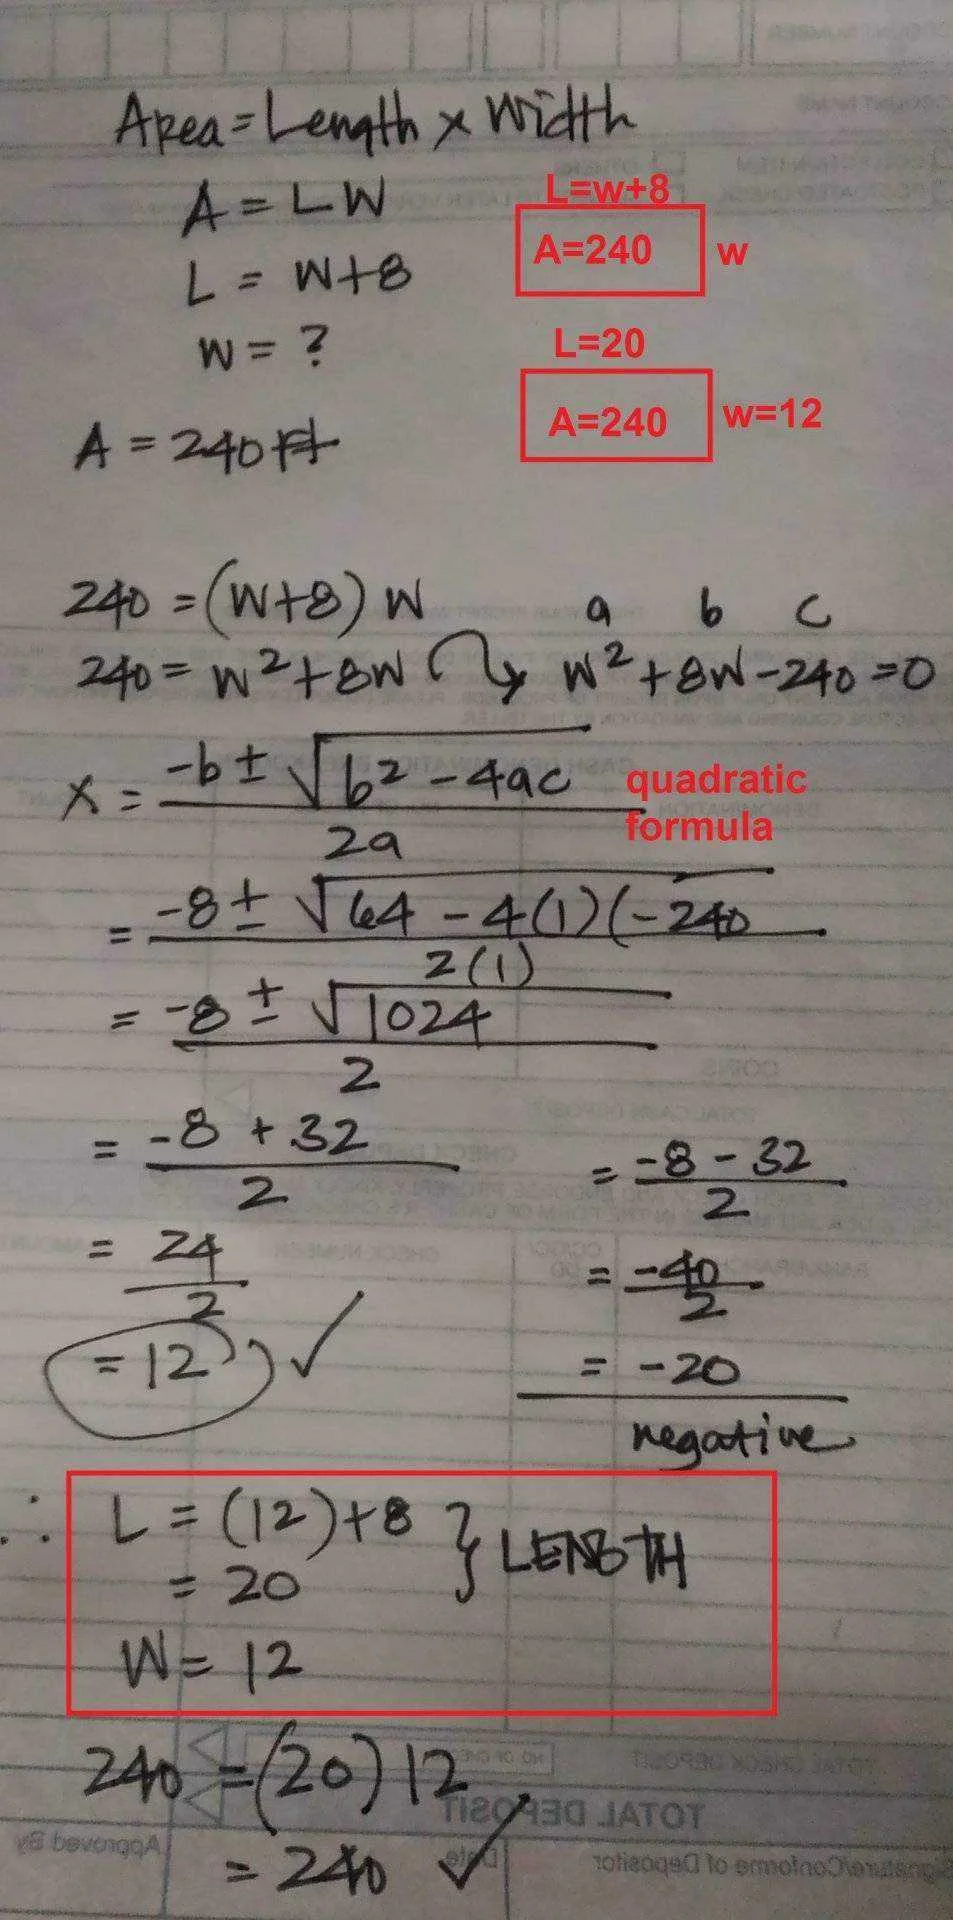 Area = Length x Width
A = LW
L = W+8
W = ?
A = 240 ft
L=w+8
A=240 w
L=20
A=240 w=12
240 = (W+8) W
a b c
240 = W² + 8W W² + 8W - 240 = 0
x = -b ± √b² - 4ac
2a
quadratic
formula
= -8 ± √64 - 4(1)(-240
2(1)
= -8 ± √1024
2
= -8 + 32
2
= 24
2
= 12 ✓
= -8 - 32
2
= -40
2
= -20
negative
∴ L = (12)+8
= 20 } LENGTH
W = 12
240 = (20) 12
= 240 ✓
TOTAL DEPOSIT
TOTAL CHECK DEPOSIT
Approved By
Date
Signature/Conforme of Depositor